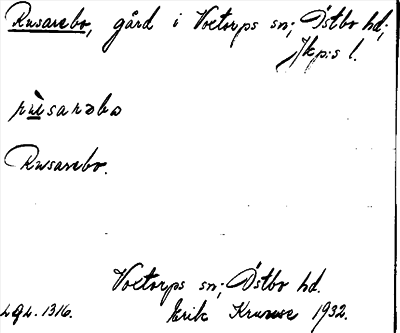 Rusarebo, gård i Voxtorps sn; Östbo hd;
Jkp:s l.
rù̱sarəbo
Rusarebo.
Voxtorps sn; Östbo hd.
Erik Kruuse 1932.